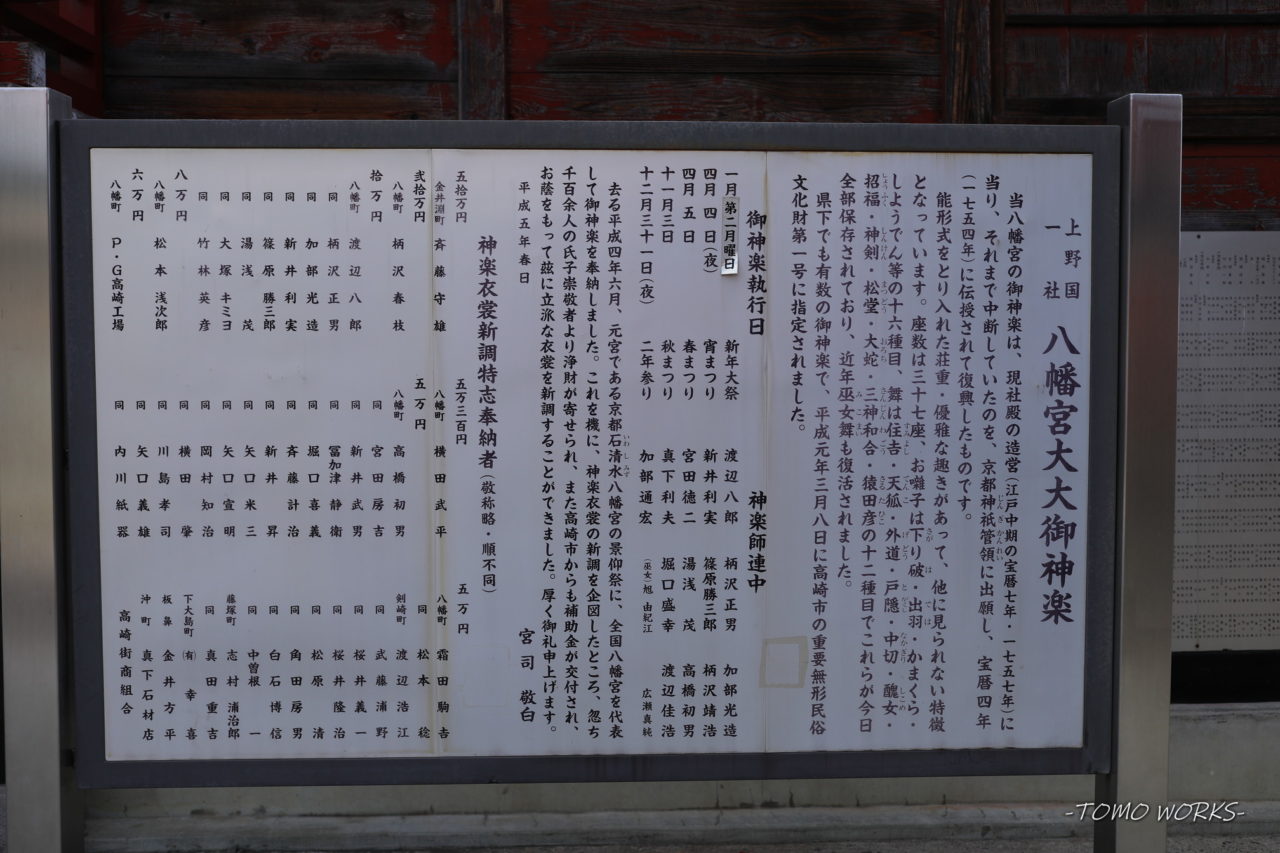 上野国
一社
八幡宮大大御神楽
当八幡宮の御神楽は、現社殿の造営（江戸中期の宝暦七年・一七五七年）に
当り、それまで中断していたのを、京都神祇管領に出願し、宝暦四年
（一七五四年）に伝授されて復興したものです。
能形式をとり入れた荘重・優雅な趣きがあって、他に見られない特徴
となっています。座数は三十七座、お囃子は下り破・出羽・かまくら・
しようでん等の十六種目、舞は住吉・天狐・外道・戸隠・中切・醜女・
招福・神剣・松堂・大蛇・三神和合・猿田彦の十二種目でこれらが今日
全部保存されており、近年巫女舞も復活されました。
県下でも有数の御神楽で、平成元年三月八日に高崎市の重要無形民俗
文化財第一号に指定されました。
御神楽執行日
一月第二月曜日 新年大祭
四月四日（夜） 宵まつり
四月五日 春まつり
十一月三日 秋まつり
十二月三十一日（夜） 二年参り
神楽師連中
渡辺八郎 柄沢正男 加部光造
新井利実 篠原勝三郎 柄沢靖浩
宮田徳二 湯浅茂 高橋初男
真下利夫 堀口盛幸 渡辺佳浩
加部通宏 （巫女）旭由紀江 広瀬真純
去る平成四年六月、元宮である京都石清水八幡宮の景仰祭に、全国八幡宮を代表
して御神楽を奉納しました。これを機に、神楽衣裳の新調を企図したところ、忽ち
千百余人の氏子崇敬者より浄財が寄せられ、また高崎市からも補助金が交付され、
お蔭をもって玆に立派な衣裳を新調することができました。厚く御礼申上げます。
平成五年春日 宮司 敬白
神楽衣裳新調特志奉納者（敬称略・順不同）
五拾万円
金井淵町 斉藤守雄
弐拾万円
八幡町 柄沢春枝
拾万円
八幡町 渡辺八郎
同 柄沢正男
同 加部光造
同 新井利実
同 篠原勝三郎
同 湯浅茂
同 大塚キミヨ
同 竹林英彦
八万円
八幡町 松本浅次郎
六万円
八幡町 P・G高崎工場
五万三百円
八幡町 横田武平
五万円
八幡町 高橋初男
同 宮田房吉
同 新井武男
同 冨加津静衛
同 堀口喜義
同 斉藤計治
同 新井昇
同 矢口米三
同 矢口宣明
同 岡村知治
同 横田肇
同 川島孝司
同 矢口義雄
同 内川紙器
五万円
八幡町 霜田駒吉
同 松本稔
剣崎町 渡辺浩江
同 武藤浦野
同 桜井義一
同 桜井隆治
同 松原清
同 角田房男
同 白石博信
同 中曽根一
藤塚町 志村浦治郎
同 真田重吉
下大島町 ㈲幸喜
板鼻 金井方平
沖町 真下石材店
高崎街商組合
-TOMO WORKS-